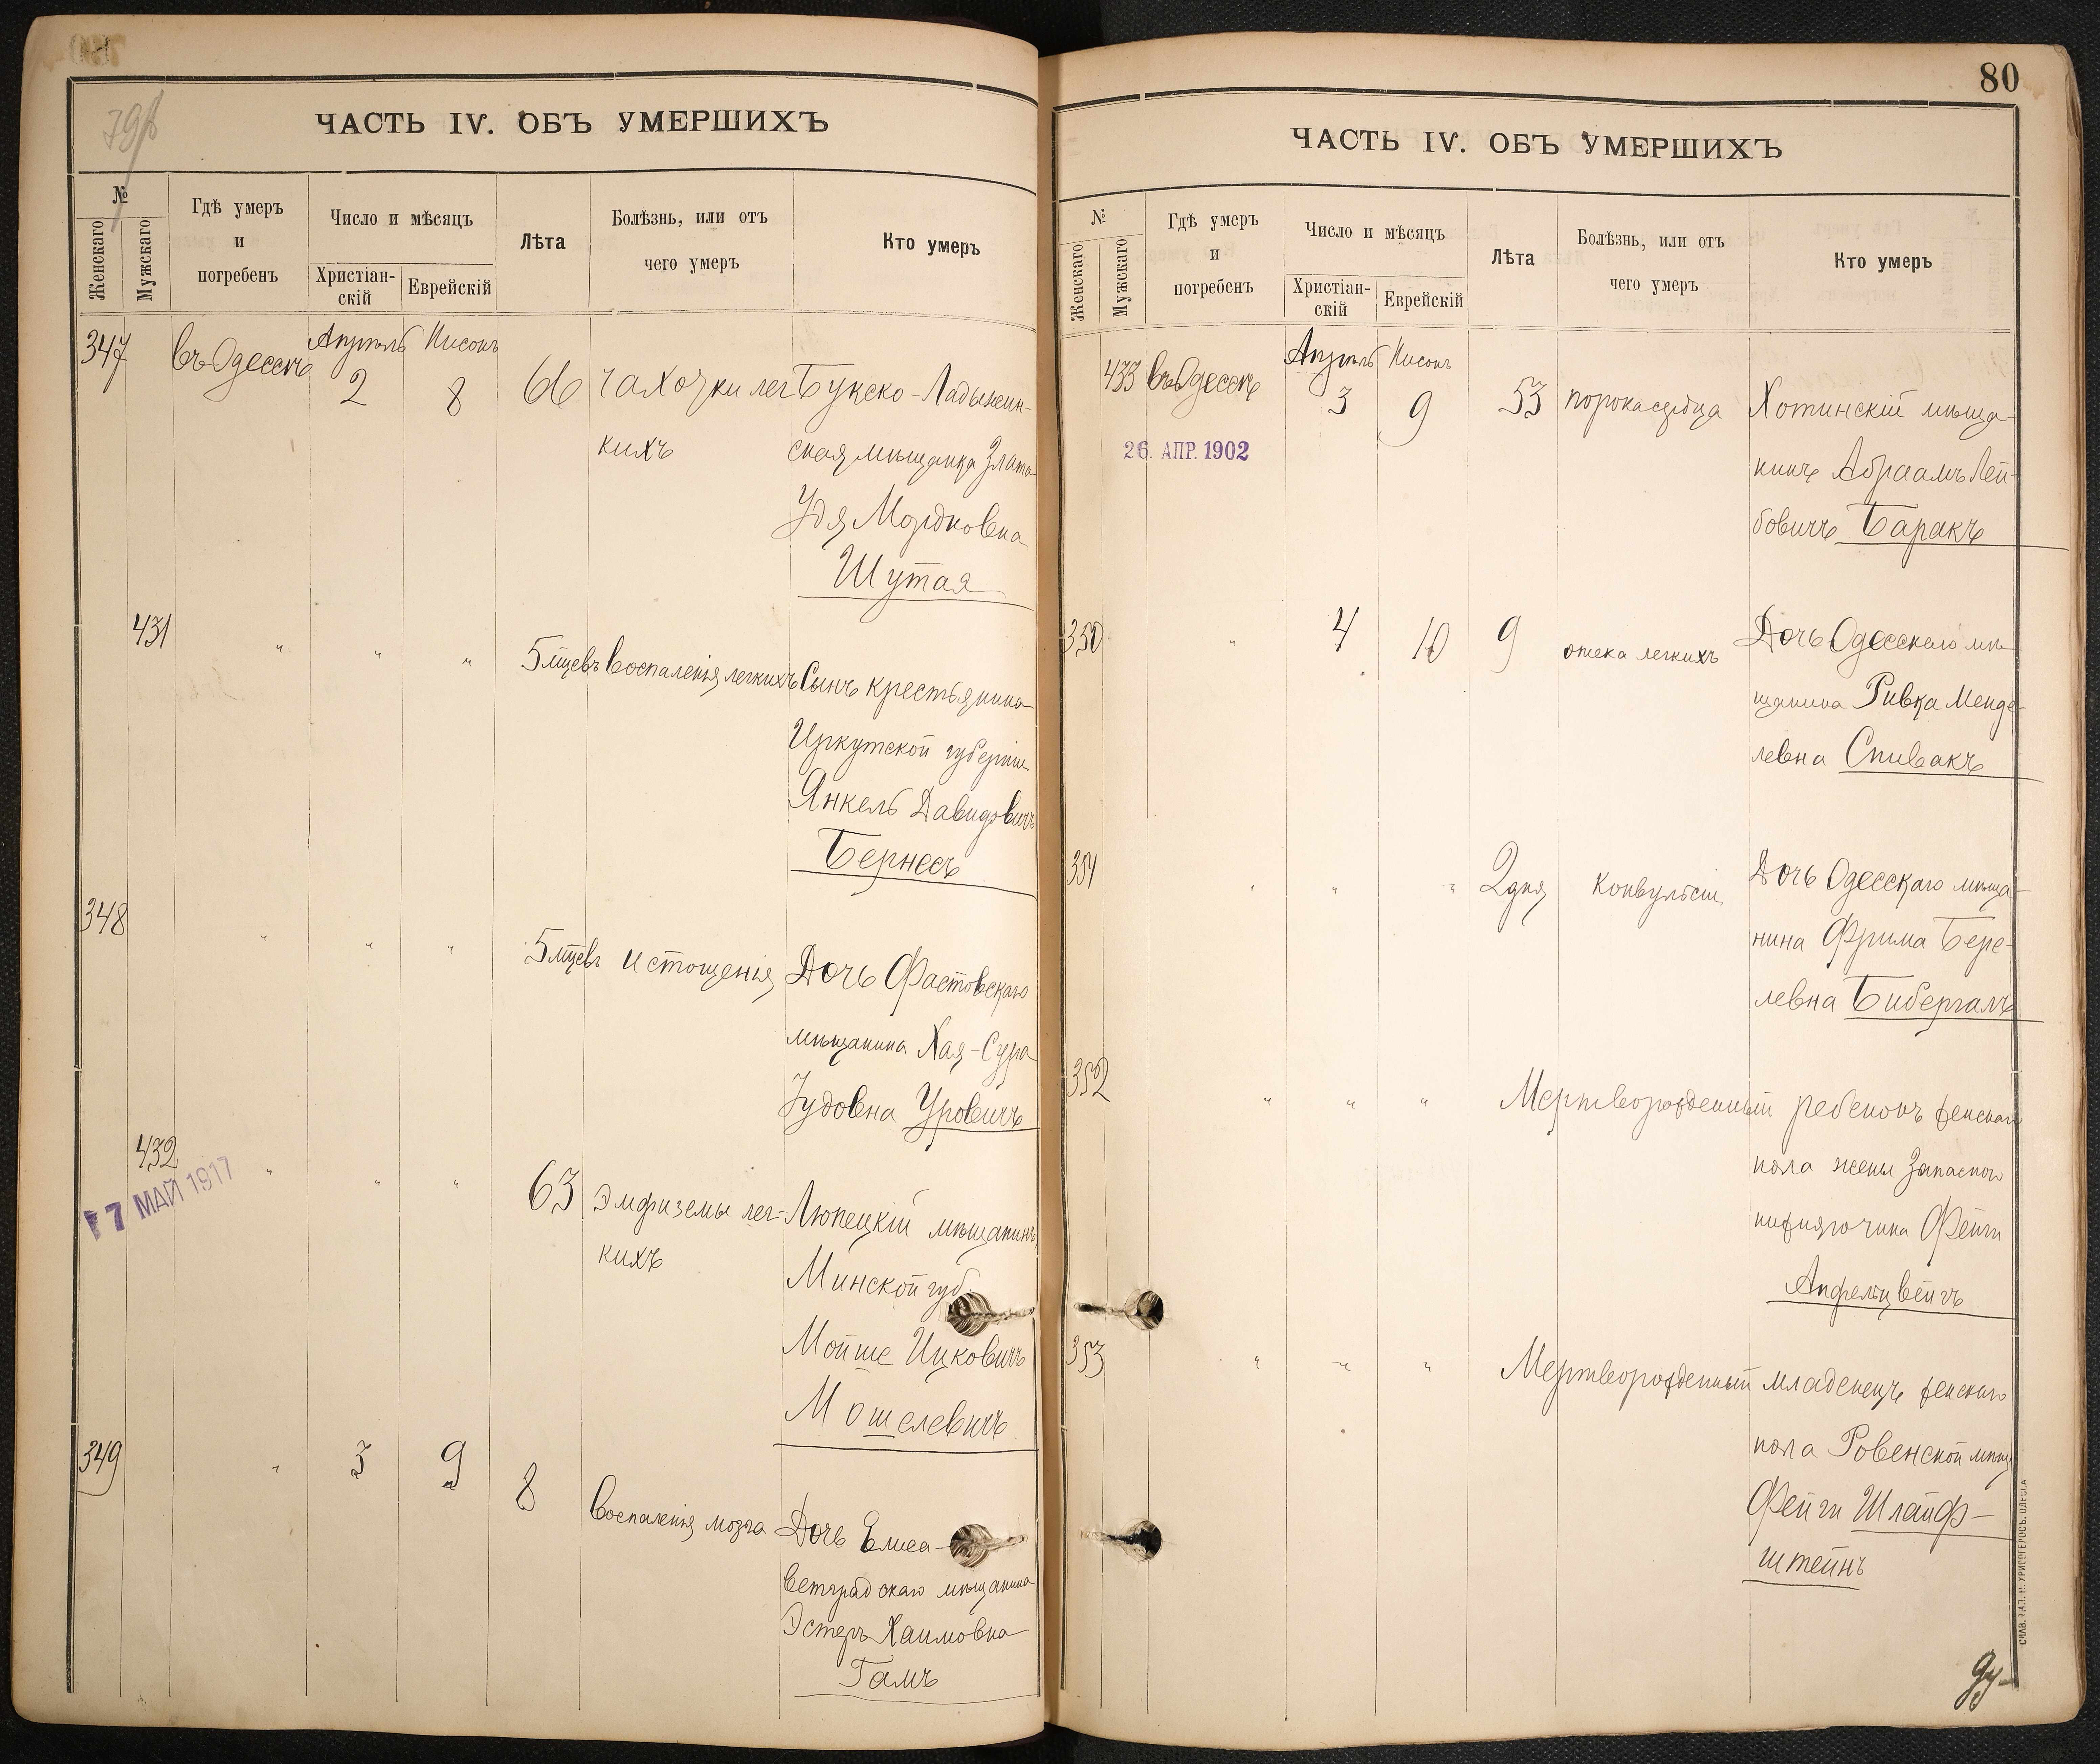 79
ЧАСТЬ IV. ОБЪ УМЕРШИХЪ
№
Женскаго
Мужскаго
Гдѣ умеръ
и
погребенъ
Число и мѣсяцъ
Христіан-
скій
Еврейскій
Лѣта
Болѣзнь, или отъ
чего умеръ
Кто умеръ
347 въ Одессѣ Апрель Нисонъ
2 8 66 чахотки лег- Букско-Ладыжин-
кихъ ская мѣщанка Злата-
Удя Мордковна
Шутая
431 " " " 5 мцевъ воспаленія легкихъ Сынъ крестьянина
Иркутской губерніи
Янкель Давидовичъ
Бернесъ
348 " " " 5 мцевъ истощенія Дочь Фастовскаго
мѣщанина Хая-Сура
Іудовна Уровичъ
432 " " " 63 Эмфиземы лег- мѣщанинъ
17 МАЙ 1917
кихъ Минской губ.
Мойше Ицковичъ
Мошелевичъ
349 " 3 9 8 воспаленія мозга Дочь Елиса-
ветградскаго мѣщанина
Эстеръ Хаимовна
Гамъ
80
ЧАСТЬ IV. ОБЪ УМЕРШИХЪ
№
Женскаго
Мужскаго
Гдѣ умеръ
и
погребенъ
Число и мѣсяцъ
Христіан-
скій
Еврейскій
Лѣта
Болѣзнь, или отъ
чего умеръ
Кто умеръ
433 въ Одессѣ Апрель Нисонъ
3 9 53 порока сердца Хотинскій мѣща-
26. АПР. 1902
нинъ Абраамъ Лей-
бовичъ Баракъ
350 " 4 10 9 отека легкихъ Дочь Одесскаго мѣ-
щанина Ривка Менде-
левна Спивакъ
351 " " " 2 дня конвульсіи Дочь Одесскаго мѣща-
нина Фрима Бере-
левна Бибергалъ
352 " " " Мертворожденный ребенокъ женскаго
пола жены запаснаго
Фейги
Апфельцвейгъ
353 " " " Мертворожденный младенецъ женскаго
пола Ровенской мѣщ.
Фейги Шлайф-
штейнъ